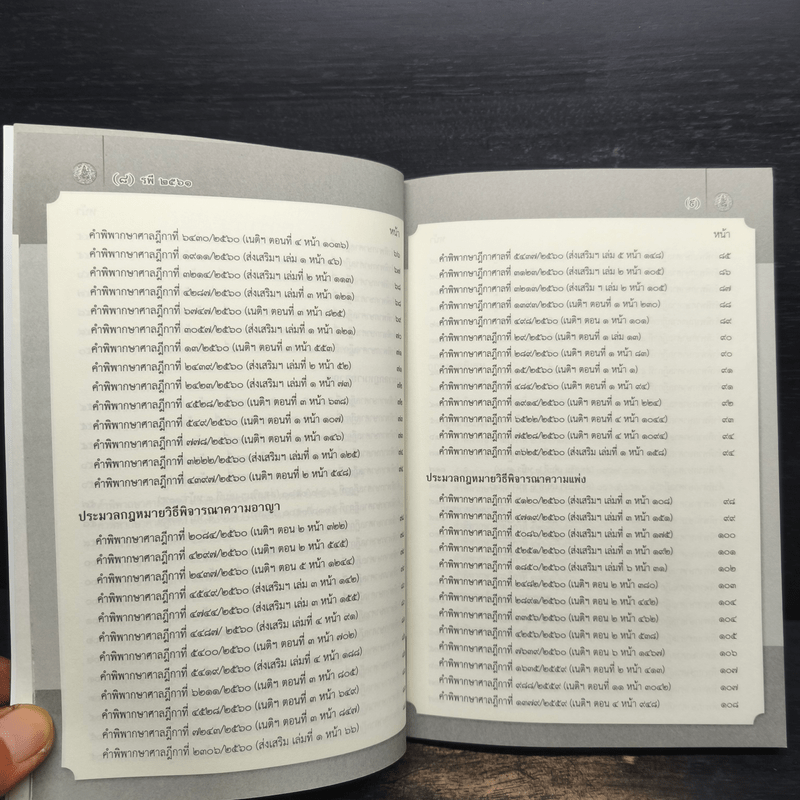 (๘) รพี ๒๕๖๑
หน้า
คำพิพากษาศาลฎีกาที่ ๖๔๓๐/๒๕๖๐ (เนติฯ ตอนที่ ๔ หน้า ๑๐๓๖)
คำพิพากษาศาลฎีกาที่ ๑๙๑๑/๒๕๖๐ (ส่งเสริมฯ เล่ม ๑ หน้า ๔๖)
คำพิพากษาศาลฎีกาที่ ๓๒๑๔/๒๕๖๐ (ส่งเสริมฯ เล่มที่ ๒ หน้า ๑๑๓)
คำพิพากษาศาลฎีกาที่ ๔๒๘๗/๒๕๖๐ (ส่งเสริมฯ เล่มที่ ๓ หน้า ๑๒๑)
คำพิพากษาศาลฎีกาที่ ๖๗๔๗/๒๕๖๐ (เนติฯ ตอนที่ ๓ หน้า ๘๒๕)
คำพิพากษาศาลฎีกาที่ ๓๐๕๗/๒๕๖๐ (ส่งเสริมฯ เล่มที่ ๑ หน้า ๑๒๑)
คำพิพากษาศาลฎีกาที่ ๑๓/๒๕๖๐ (เนติฯ ตอนที่ ๓ หน้า ๕๕๓)
คำพิพากษาศาลฎีกาที่ ๒๔๓๙/๒๕๖๐ (ส่งเสริมฯ เล่มที่ ๒ หน้า ๕๒)
คำพิพากษาศาลฎีกาที่ ๒๔๒๓/๒๕๖๐ (ส่งเสริมฯ เล่มที่ ๑ หน้า ๗๓)
คำพิพากษาศาลฎีกาที่ ๔๕๒๘/๒๕๖๐ (เนติฯ ตอนที่ ๓ หน้า ๖๓๘)
คำพิพากษาศาลฎีกาที่ ๕๔๙/๒๕๖๐ (เนติฯ ตอนที่ ๑ หน้า ๑๐๗)
คำพิพากษาศาลฎีกาที่ ๗๗๘/๒๕๖๐ (เนติฯ ตอนที่ ๑ หน้า ๑๔๖)
คำพิพากษาศาลฎีกาที่ ๓๒๒๒/๒๕๖๐ (ส่งเสริมฯ เล่มที่ ๑ หน้า ๑๒๕)
คำพิพากษาศาลฎีกาที่ ๔๓๙๗/๒๕๖๐ (เนติฯ ตอนที่ ๒ หน้า ๕๔๘)
ประมวลกฎหมายวิธีพิจารณาความอาญา
คำพิพากษาศาลฎีกาที่ ๒๐๘๔/๒๕๖๐ (เนติฯ ตอน ๒ หน้า ๓๒๒)
คำพิพากษาศาลฎีกาที่ ๔๒๙๗/๒๕๖๐ (เนติฯ ตอน ๒ หน้า ๕๔๕)
คำพิพากษาศาลฎีกาที่ ๒๔๓๗/๒๕๖๐ (เนติฯ ตอน ๕ หน้า ๑๒๔๔)
คำพิพากษาศาลฎีกาที่ ๔๕๔๙/๒๕๖๐ (ส่งเสริมฯ เล่ม ๓ หน้า ๑๔๒)
คำพิพากษาศาลฎีกาที่ ๔๗๔๔/๒๕๖๐ (ส่งเสริม เล่ม ๓ หน้า ๑๕๕)
คำพิพากษาศาลฎีกาที่ ๔๔๘๗/ ๒๕๖๐ (ส่งเสริม เล่มที่ ๔ หน้า ๙๑)
คำพิพากษาศาลฎีกาที่ ๕๔๐๐/๒๕๖๐ (เนติฯ ตอนที่ ๓ หน้า ๗๐๒)
คำพิพากษาศาลฎีกาที่ ๕๔๑๙/๒๕๖๐ (ส่งเสริม เล่มที่ ๔ หน้า ๑๘๘)
คำพิพากษาศาลฎีกาที่ ๖๒๑๑/๒๕๖๐ (เนติฯ ตอนที่ ๓ หน้า ๘๐๕)
คำพิพากษาศาลฎีกาที่ ๔๕๒๘/๒๕๖๐ (เนติฯ ตอนที่ ๓ หน้า ๖๔๙)
คำพิพากษาศาลฎีกาที่ ๗๒๔๓/๒๕๖๐ (เนติฯ ตอนที่ ๓ หน้า ๘๔๗)
คำพิพากษาศาลฎีกาที่ ๒๓๐๖/๒๕๖๐ (ส่งเสริม เล่มที่ ๑ หน้า ๖๖)
หน้า
คำพิพากษาฎีกาศาลที่ ๕๔๓๗/๒๕๖๐ (ส่งเสริมฯ เล่ม ๕ หน้า ๑๔๘) ๘๕
คำพิพากษาฎีกาศาลที่ ๓๑๒๓/๒๕๖๐ (ส่งเสริมฯ เล่ม ๒ หน้า ๑๐๕) ๘๖
คำพิพากษาฎีกาศาลที่ ๓๒๑๓/๒๕๖๐ (ส่งเสริม ฯ เล่ม ๒ หน้า ๑๐๕) ๘๗
คำพิพากษาฎีกาศาลที่ ๑๓๙๓/๒๕๖๐ (เนติฯ ตอนที่ ๑ หน้า ๒๓๐) ๘๘
คำพิพากษาฎีกาศาลที่ ๔๙๘/๒๕๖๐ (เนติฯ ตอน ๑ หน้า ๑๐๑) ๘๙
คำพิพากษาศาลฎีกาที่ ๒๙/๒๕๖๐ (เนติฯ ตอนที่ ๑ เล่ม ๑๓) ๙๐
คำพิพากษาศาลฎีกาที่ ๒๘๙/๒๕๖๐ (เนติฯ ตอนที่ ๑ หน้า ๘๓) ๙๐
คำพิพากษาศาลฎีกาที่ ๑๕/๒๕๖๐ (เนติฯ ตอนที่ ๑ หน้า ๑) ๙๑
คำพิพากษาศาลฎีกาที่ ๔๘๔/๒๕๖๐ (เนติฯ ตอนที่ ๑ หน้า ๙๔) ๙๑
คำพิพากษาศาลฎีกาที่ ๑๙๑๔/๒๕๖๐ (เนติฯ ตอนที่ ๑ หน้า ๒๒๔) ๙๒
คำพิพากษาศาลฎีกาที่ ๖๕๒๒/๒๕๖๐ (เนติฯ ตอนที่ ๔ หน้า ๑๐๔๔) ๙๓
คำพิพากษาศาลฎีกาที่ ๗๕๒๘/๒๕๖๐ (เนติฯ ตอนที่ ๔ หน้า ๑๐๙๔) ๙๔
คำพิพากษาศาลฎีกาที่ ๓๖๒๕/๒๕๖๐ (ส่งเสริม เล่มที่ ๑ หน้า ๑๕๘) ๙๔
ประมวลกฎหมายวิธีพิจารณาความแพ่ง
คำพิพากษาศาลฎีกาที่ ๔๑๒๐/๒๕๖๐ (ส่งเสริมฯ เล่มที่ ๓ หน้า ๑๐๘) ๙๘
คำพิพากษาศาลฎีกาที่ ๔๗๑๙/๒๕๖๐ (ส่งเสริมฯ เล่มที่ ๓ หน้า ๑๕๑) ๙๙
คำพิพากษาศาลฎีกาที่ ๕๐๘๖/๒๕๖๐ (ส่งเสริมฯ เล่มที่ ๓ หน้า ๑๗๕) ๑๐๐
คำพิพากษาศาลฎีกาที่ ๕๒๕๑/๒๕๖๐ (ส่งเสริมฯ เล่มที่ ๓ หน้า ๑๙๒) ๑๐๑
คำพิพากษาศาลฎีกาที่ ๑๘๕๐/๒๕๖๐ (ส่งเสริมฯ เล่มที่ ๖ หน้า ๓๑) ๑๐๒
คำพิพากษาศาลฎีกาที่ ๒๔๘๒/๒๕๖๐ (เนติฯ ตอน ๒ หน้า ๓๘๐) ๑๐๓
คำพิพากษาศาลฎีกาที่ ๒๘๙๑/๒๕๖๐ (เนติฯ ตอน ๒ หน้า ๔๔๒) ๑๐๔
คำพิพากษาศาลฎีกาที่ ๓๓๕๖/๒๕๖๐ (เนติฯ ตอน ๒ หน้า ๔๖๒) ๑๐๔
คำพิพากษาศาลฎีกาที่ ๔๒๕๖/๒๕๖๐ (เนติฯ ตอน ๒ หน้า ๕๓๘) ๑๐๕
คำพิพากษาศาลฎีกาที่ ๗๖๑๙/๒๕๖๐ (เนติฯ ตอน ๖ หน้า ๑๔๖๗) ๑๐๖
คำพิพากษาศาลฎีกาที่ ๑๖๐๕/๒๕๕๙ (เนติฯ ตอนที่ ๒ หน้า ๔๑๓) ๑๐๗
คำพิพากษาศาลฎีกาที่ ๙๘๘/๒๕๕๙ (เนติฯ ตอนที่ ๑๑ หน้า ๓๐๔๒) ๑๐๗
คำพิพากษาศาลฎีกาที่ ๑๓๗๙/๒๕๕๙ (เนติฯ ตอน ๔ หน้า ๙๔๘) ๑๐๘